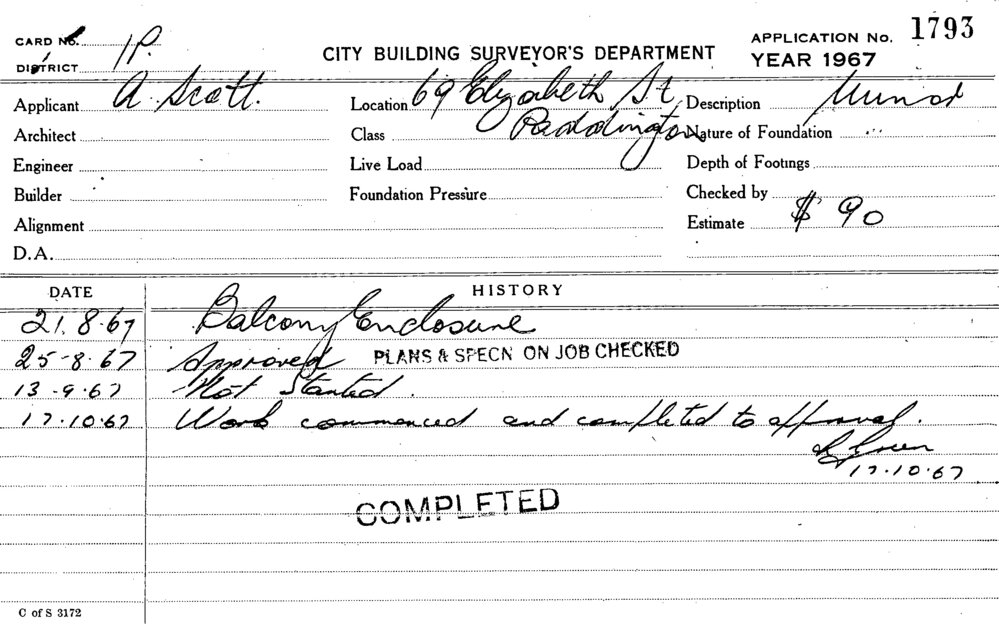 CARD No. 1P.
DISTRICT
CITY BUILDING SURVEYOR'S DEPARTMENT
APPLICATION No. 1793
YEAR 1967
Applicant A. Scott. Location 69 Elizabeth St, Description Minor
Architect Class Paddington Nature of Foundation
Engineer Live Load Depth of Footings
Builder Foundation Pressure Checked by
Alignment Estimate $ 90
D.A.
DATE HISTORY
21.8.67 Balcony Enclosure
25-8.67 Approved PLANS & SPECN ON JOB CHECKED
13-9.67 Not Started.
17.10.67 Work commenced and completed to approval.
17.10.67
COMPLETED
C of S 3172